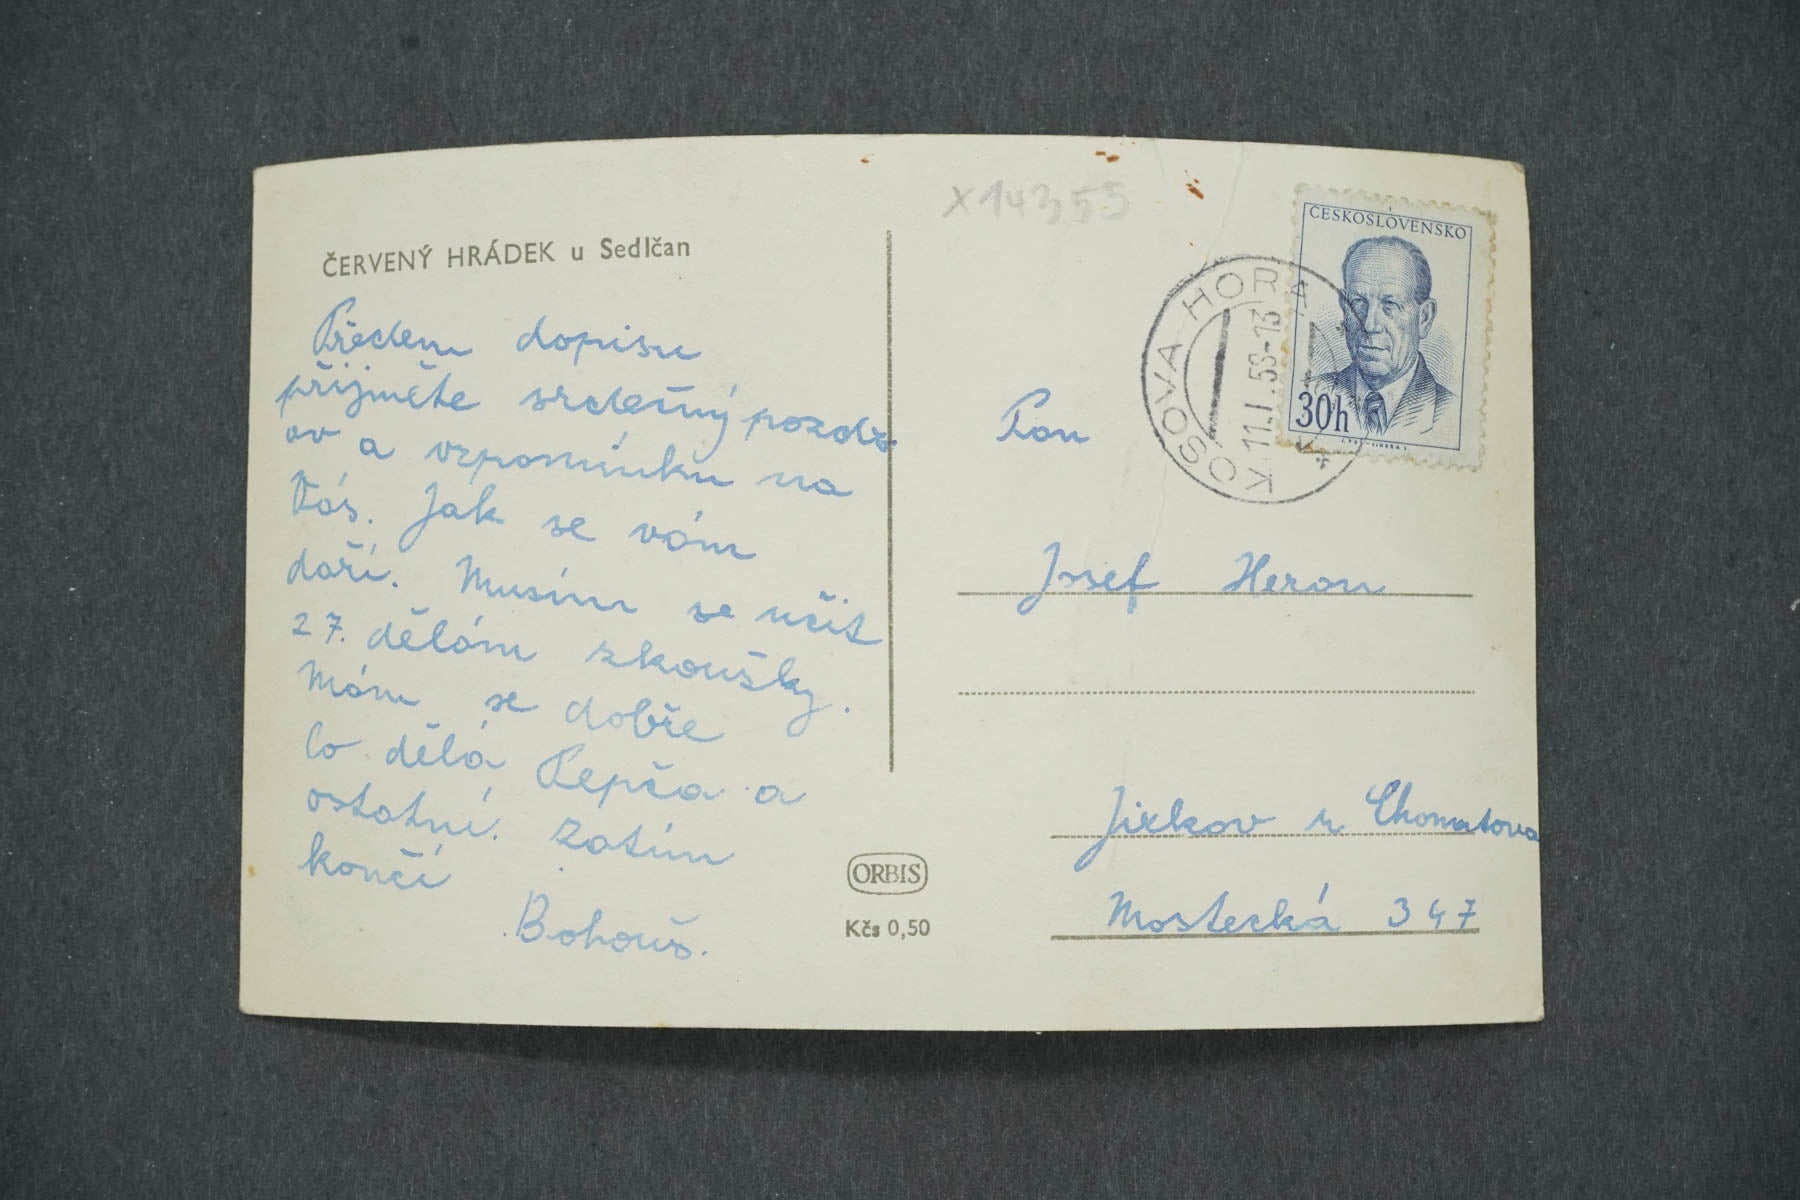 ČERVENÝ HRÁDEK u Sedlčan
Předem dopisu
přijměte srdečný pozdr
av a vzpomínku na
Vás. Jak se vám
daří. Musím se učit
27. dělám zkoušky.
Mám se dobře
Co dělá Pepča a
ostatní. Zatím
končí
Bohouš.
ORBIS
Kčs 0,50
X14355
ČESKOSLOVENSKO
30h
KOSOVA HORA
11.I.58-13
Pan
Josef Heron
Jirkov u Chomutova
Mostecká 347